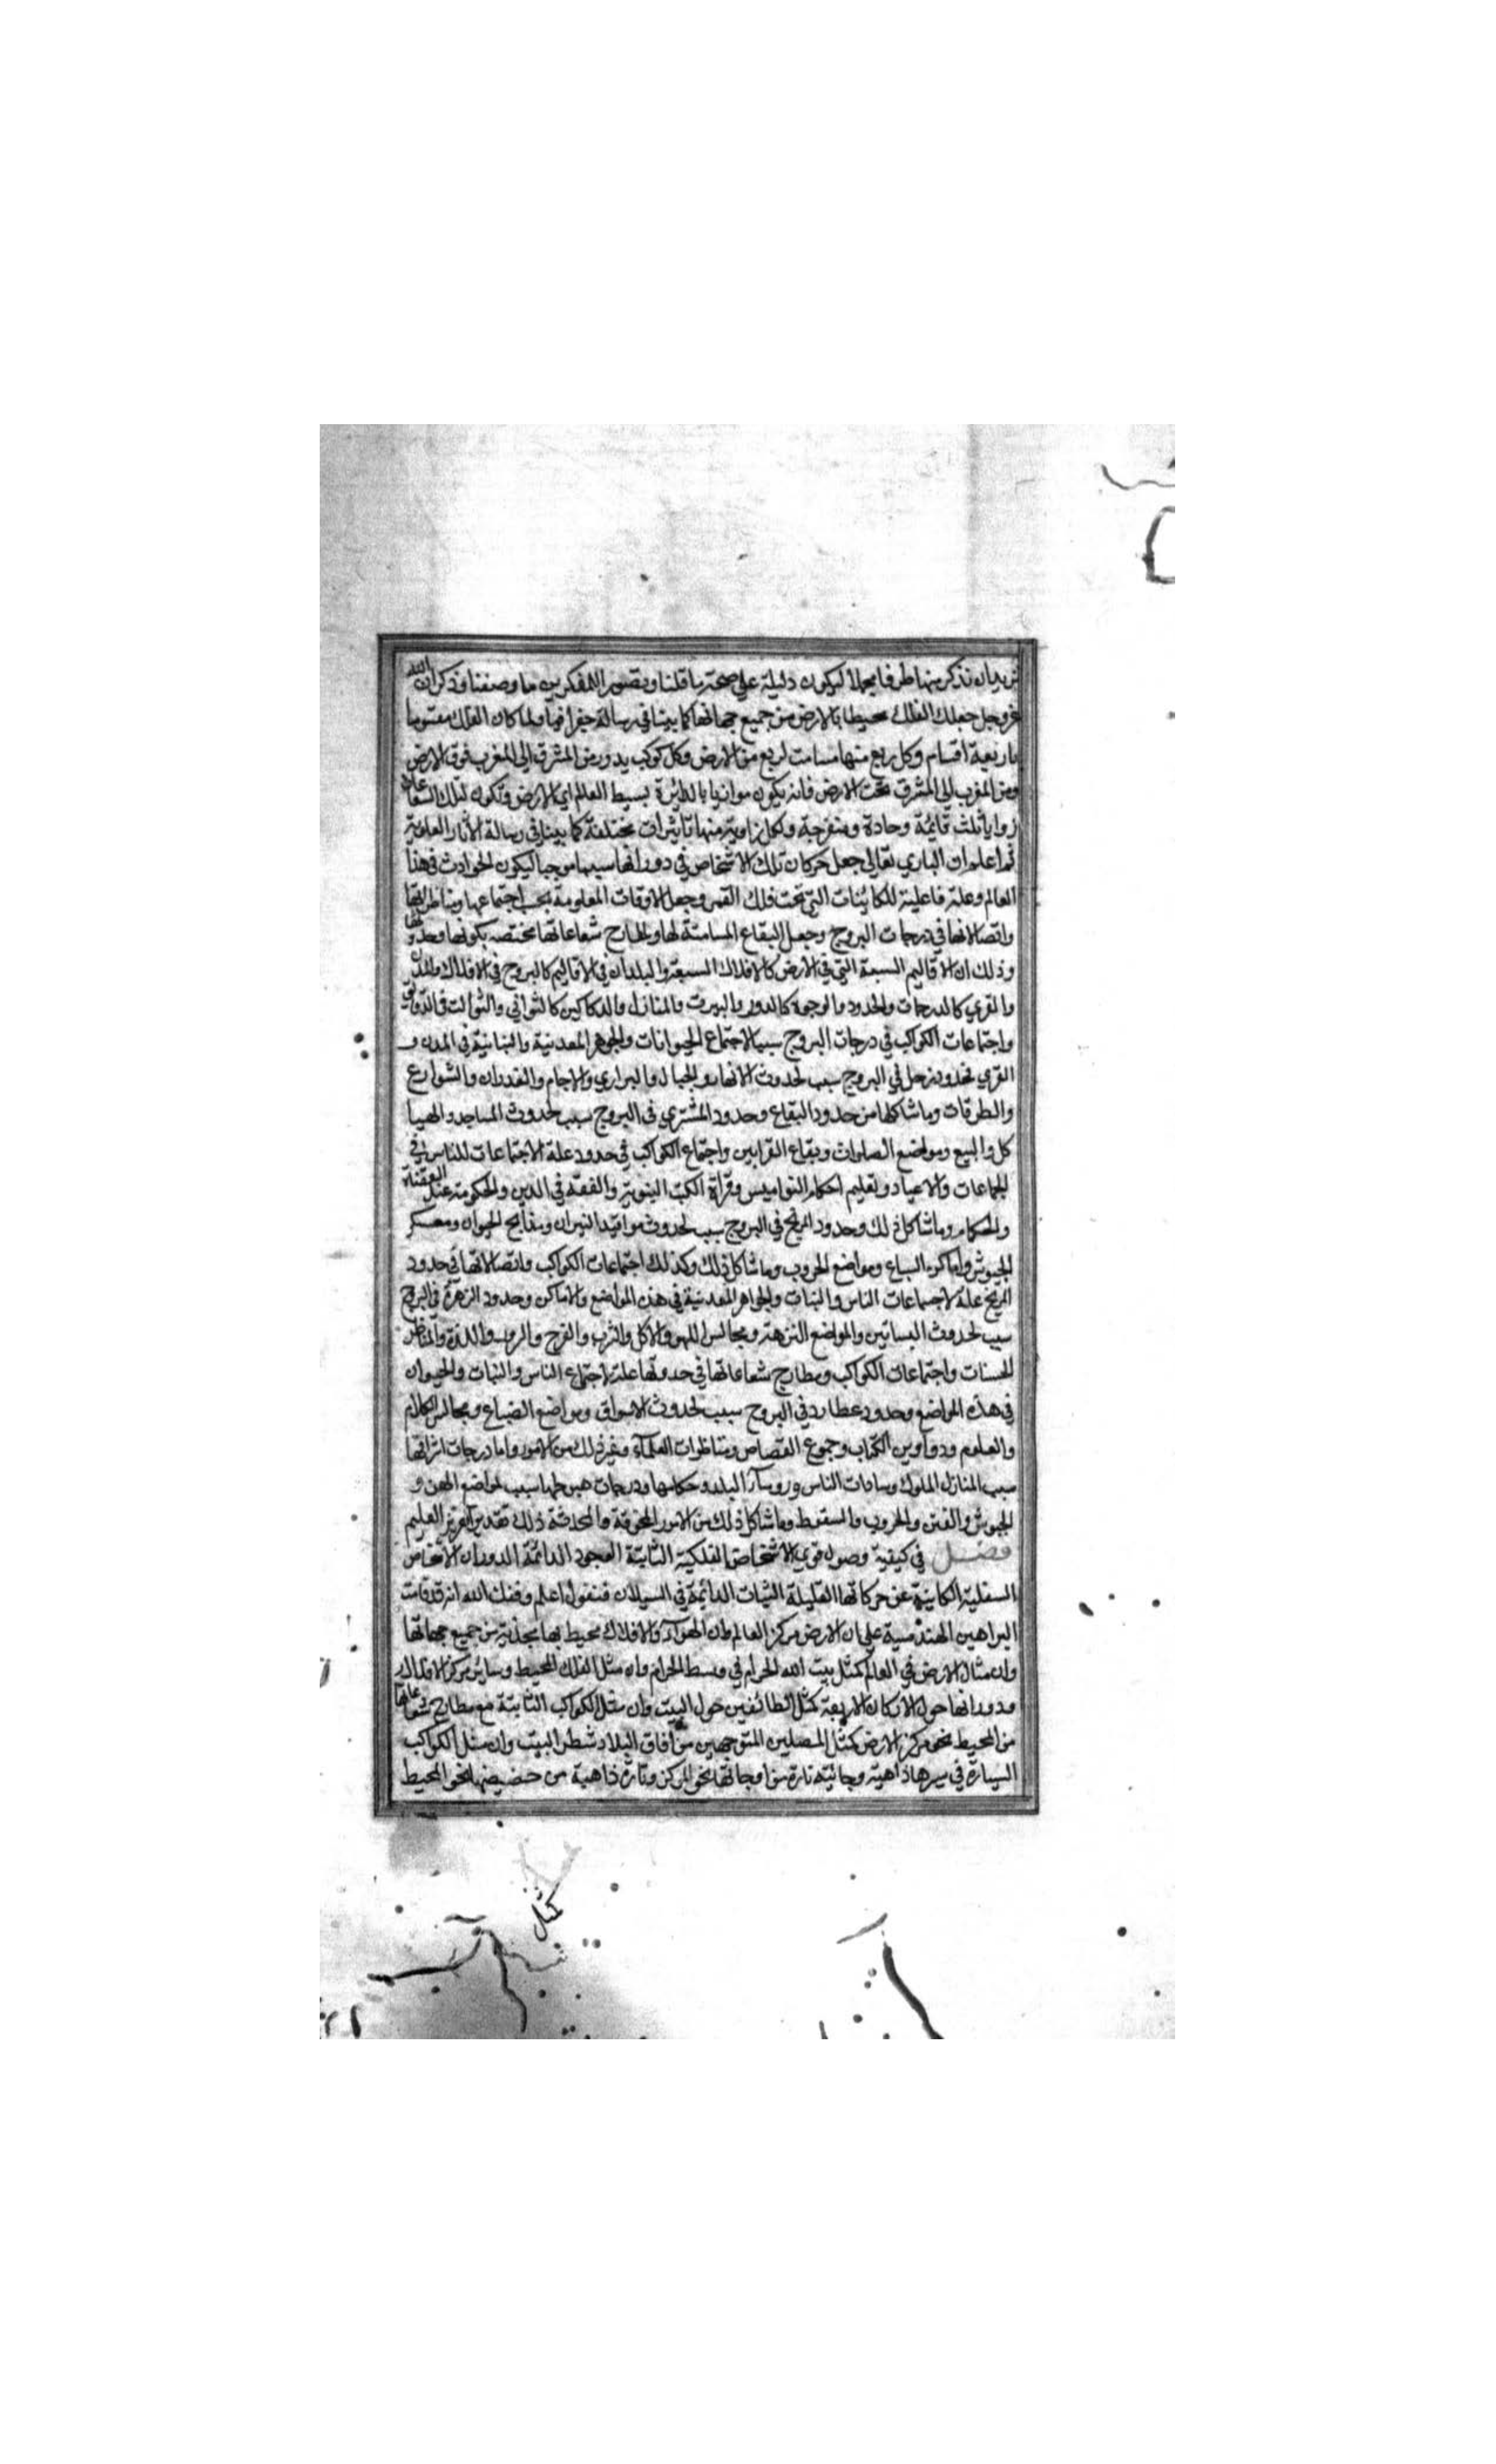 نريد ان نذكر منها طرفا مجملا ليكون دليلة علي صحة ما قلنا ويتصور المفكرين ما وصفنا وذكر ان الله
عز وجل جعل الفلك محيطا بالارض من جميع جهاتها كما بينا في رسالة جغرافيا ولما كان الفلك مقسوما
باربعة اقسام وكل ربع منها مسامت لربع من الارض وكل كوكب يدور من المشرق الي المغرب فوق الارض
ومن المغرب الي المشرق تحت الارض فانه يكون موازيا بالدائرة بسيط العالم اي الارض وتكون لتلك الشعاعات
زوايا ثلث قائمة وحادة ومنفرجة ولكل زاوية منها تاثيرات مختلفة كما بينا في رسالة الاثار العلوية
ثم اعلم ان الباري تعالي جعل حركات تلك الاشخاص في دورانها سببا موجبا ليكون الحوادث في هذا
العالم وعلة فاعلية للكائنات التي تحت فلك القمر وجعل الاوقات المعلومة بحسب اجتماعها ومناظراتها
واتصالاتها في درجات البروج وجعل البقاع المسامتة لها ومطارح شعاعاتها مختصه بكونها وحدوثها
وذلك ان الاقاليم السبعة التي في الارض كالافلاك السبعة والبلدان في الاقاليم كالبروج في الافلاك والمدن
والقري كالدرجات والحدود والوجوه كالدور والبيوت والمنازل والدكاكين كالثواني والثوالث في الدقايق
واجتماعات الكواكب في درجات البروج سببا لاجتماع الحيوانات والجوهر المعدنية والنباتية في المدن و
القري فحدود زحل في البروج سبب لحدوث الانهار والجبال والبراري والاجام والغدران والشوارع
والطرقات وما شاكلها من حدود البقاع وحدود المشتري في البروج سبب لحدوث المساجد والهيا
كل والبيع ومواضع الصلوات وبقاع القرابين واجتماع الكواكب في حدوده علة الاجتماعات للناس في
الجماعات والاعياد وتعليم احكام النواميس وقراة الكتب النبوية والفقه في الدين والحكومة عند القضاة
والحكام وما شاكل ذلك وحدود المريخ في البروج سبب لحدوث مواقيد النيران ومذابح الحيوان ومعسكر
الجيوش واماكن السباع ومواضع الحروب وما شاكل ذلك وكذلك اجتماعات الكواكب واتصالاتها في حدود
المريخ علة لاجتماعات الناس والنبات والجواهر المعدنية في هذه المواضع والاماكن وحدود الزهرة في البروج
سبب لحدوث البساتين والمواضع النزهة ومجالس اللهو والاكل والشرب والفرح والسرور واللذة والمناظر
الحسنات واجتماعات الكواكب ومطارح شعاعاتها في حدودها علة لاجتماع الناس والنبات والحيوان
في هذه المواضع وحدود عطارد في البروج سبب لحدوث الاسواق ومواضع الصناع ومجالس الكلام
والعلوم ودواوين الكتاب وجموع القصاص ومناظرات العلماء وغير ذلك من الامور واما درجات اشرافها
سبب المنازل الملوك وسادات الناس وروساء البلد وحكامها ودرجات هبوطها سبب لمواضع المحن و
الجيوش والفتن والحروب والسقوط وما شاكل ذلك من الامور المخوفة والمحدثة ذلك تقدير العزيز العليم
فصل في كيفية وصول قوي الاشخاص الفلكية الثابتة الوجود الدائمة الدوران الاشخاص
السفلية الكاينة عن حركاتها القليلة الثبات الدائمة في السيلان فنقول اعلم وفقك الله انه قد قامت
البراهين الهندسية علي ان الارض مركز العالم وان الهواء والافلاك محيط بها محدقة من جميع جهاتها
وان مثال الارض في العالم كمثل بيت الله الحرام في وسط الحرام وان مثل الفلك المحيط وساير مركز الافلاك
ودورانها حول الاركان الاربعة كمثل الطائفين حول البيت وان مثل الكواكب الثابتة مع مطارح شعاعاتها
من المحيط نحو مركز الارض كمثل المصلين المتوجهين من آفاق البلاد شطر البيت وان مثل الكواكب
السيارة في سيرها ذاهبة وجائية تارة من اوجاتها نحو المركز وتارة ذاهبة من حضيضها نحو المحيط
كمثل